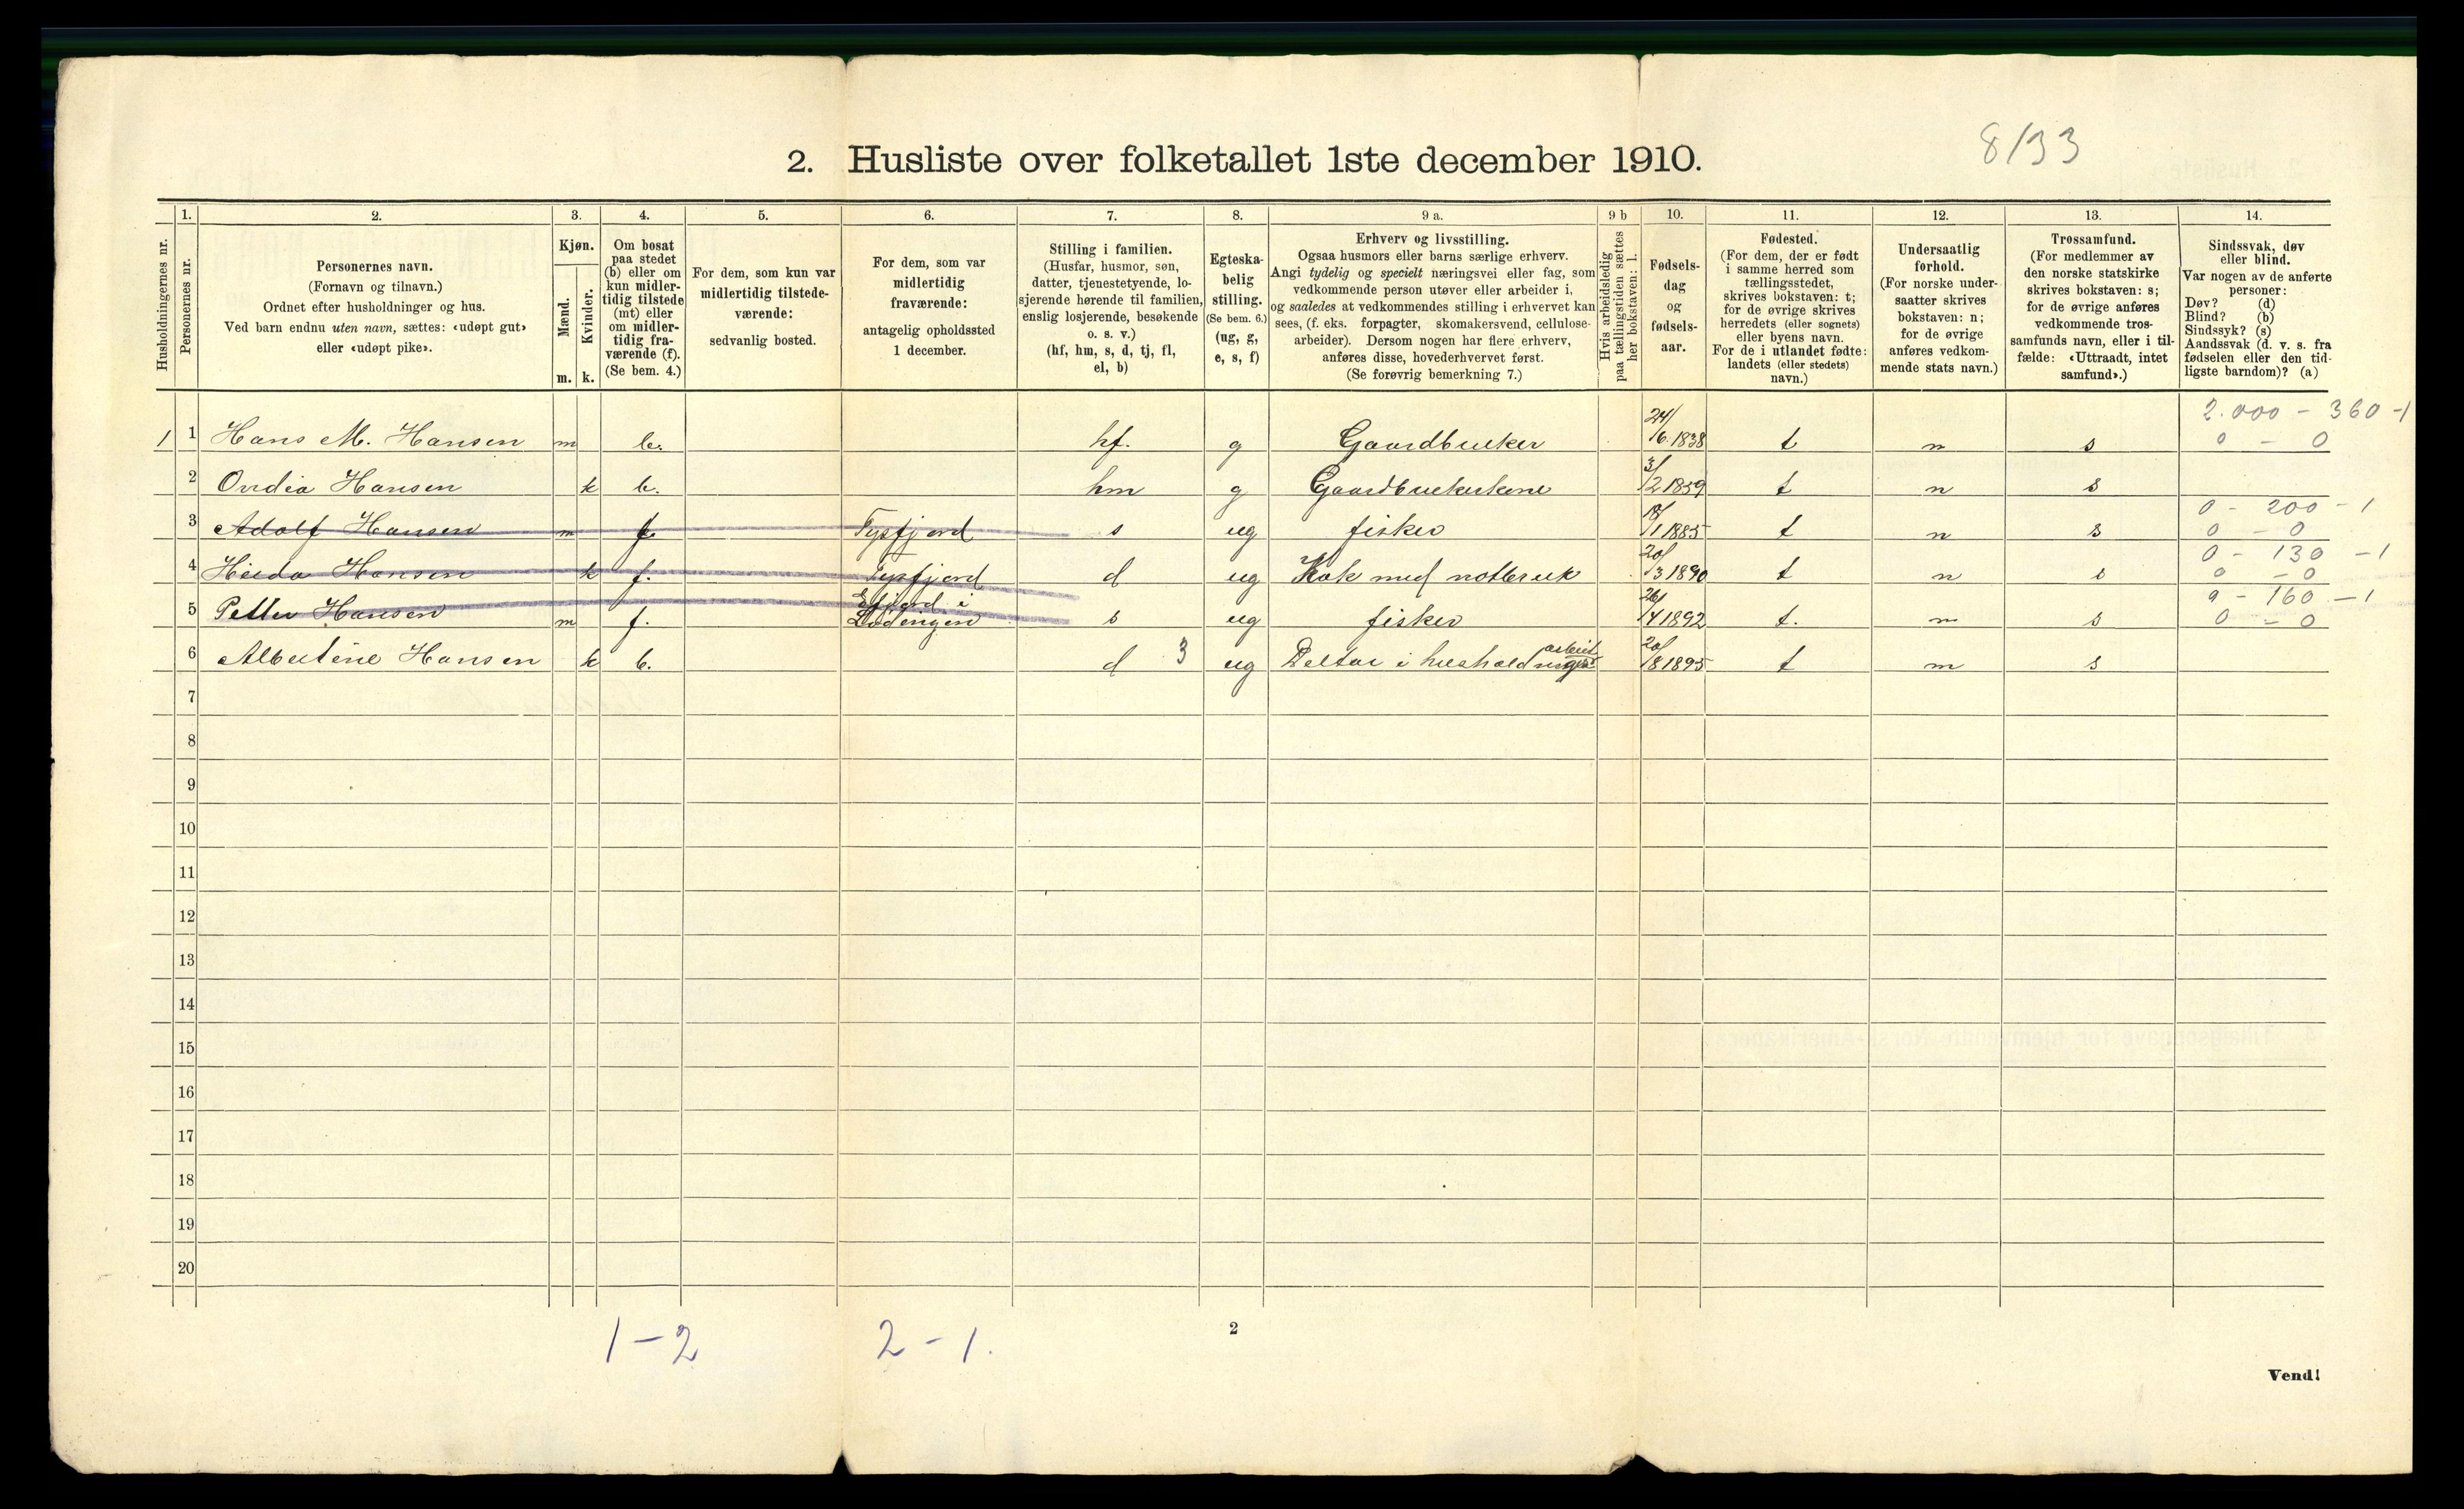 8/33
2. Husliste over folketallet 1ste december 1910.
1. 2. 3. 4. 5. 6. 7. 8. 9 a. 9 b 10. 11. 12. 13. 14.
Husholdningernes nr.
Personernes nr.
Personernes navn.
(Fornavn og tilnavn.)
Ordnet efter husholdninger og hus.
Ved barn endnu uten navn, sættes: «udøpt gut»
eller «udøpt pike».
Kjøn.
Mænd.
Kvinder.
m. k.
Om bosat
paa stedet
(b) eller om
kun midler-
tidig tilstede
(mt) eller
om midler-
tidig fra-
værende (f).
(Se bem. 4.)
For dem, som kun var
midlertidig tilstede-
værende:
sedvanlig bosted.
For dem, som var
midlertidig
fraværende:
antagelig opholdssted
1 december.
Stilling i familien.
(Husfar, husmor, søn,
datter, tjenestetyende, lo-
sjerende hørende til familien,
enslig losjerende, besøkende
o. s. v.)
(hf, hm, s, d, tj, fl,
el, b)
Egteska-
belig
stilling.
(Se bem. 6.)
(ug, g,
e, s, f)
Erhverv og livsstilling.
Ogsaa husmors eller barns særlige erhverv.
Angi tydelig og specielt næringsvei eller fag, som
vedkommende person utøver eller arbeider i,
og saaledes at vedkommendes stilling i erhvervet kan
sees, (f. eks. forpagter, skomakersvend, cellulose-
arbeider). Dersom nogen har flere erhverv,
anføres disse, hovederhvervet først.
(Se forøvrig bemerkning 7.)
Hvis arbeidsledig
paa tællingstiden sættes
her bokstaven: l.
Fødsels-
dag
og
fødsels-
aar.
Fødested.
(For dem, der er født
i samme herred som
tællingsstedet,
skrives bokstaven: t;
for de øvrige skrives
herredets (eller sognets)
eller byens navn.
For de i utlandet fødte:
landets (eller stedets)
navn.)
Undersaatlig
forhold.
(For norske under-
saatter skrives
bokstaven: n;
for de øvrige
anføres vedkom-
mende stats navn.)
Trossamfund.
(For medlemmer av
den norske statskirke
skrives bokstaven: s;
for de øvrige anføres
vedkommende tros-
samfunds navn, eller i til-
fælde: «Uttraadt, intet
samfund».)
Sindssvak, døv
eller blind.
Var nogen av de anførte
personer:
Døv? (d)
Blind? (b)
Sindssyk? (s)
Aandssvak (d. v. s. fra
fødselen eller den tid-
ligste barndom)? (a)
2.000 - 360 -1
1 1 Hans M. Hansen m b. hf. g Gaardbruker 24/6.1838 t n s 0 - 0
2 Ovidia Hansen k b. hm g Gaardbrukerkone 3/2 1859 t n s
0 - 200 - 1
3 Adolf Hansen m f Tysfjord s ug fisker /1 1885 t n s 0 - 0
0 - 130 - 1
4 Hilda Hansen k f. Tysfjord d ug Kok med notbruk 20/3 1890 t n s 0 - 0
Efjord i 0 - 160 - 1
5 Petter Hansen m f. Lødingen s ug fisker 26/4 1892 t. n s 0 - 0
arbeid
6 Albertine Hansen k b. d 3 ug Deltar i husholdnings 20/8 1895 t n s
7
8
9
10
11
12
13
14
15
16
17
18
19
20
1 - 2 2 - 1.
2
Vend!